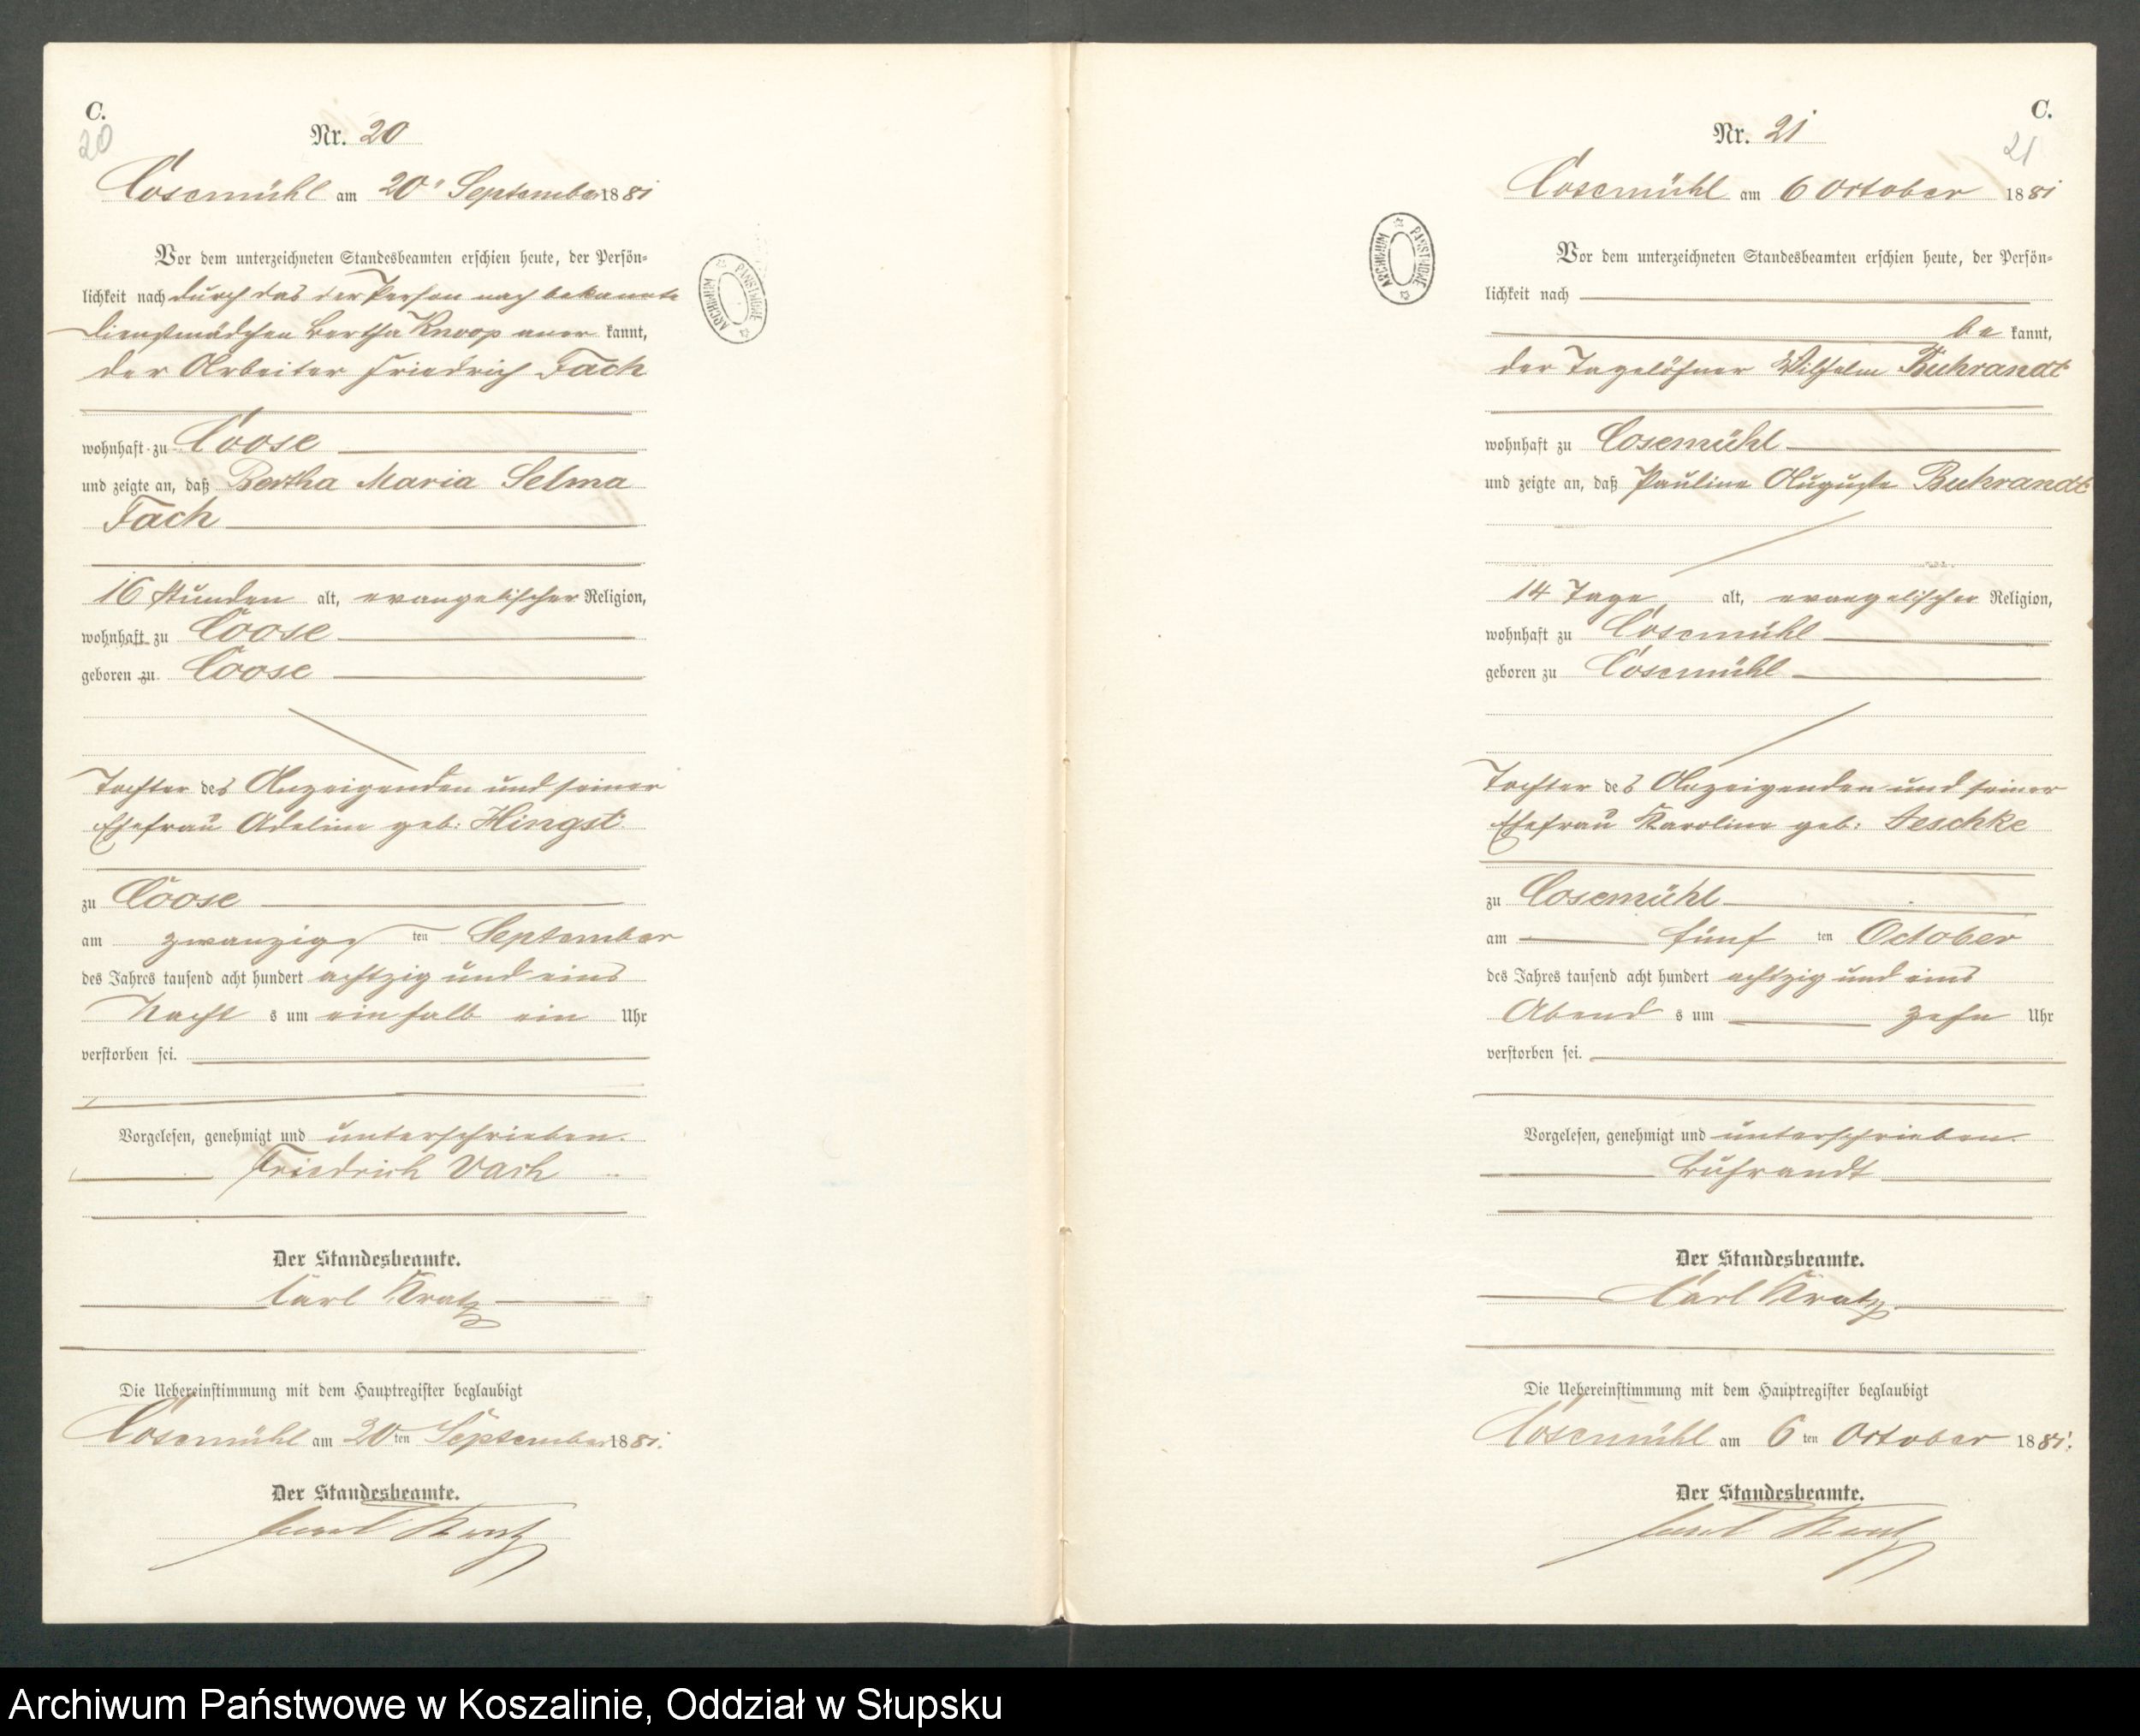 C.
20
Nr. 20
Cosemühl am 20t September 1881
Vor dem unterzeichneten Standesbeamten erschien heute, der Persön-
lichkeit nach durch das der Person nach bekannte
Dienstmädchen Bertha Knoop aner kannt,
der Arbeiter Friedrich Fach
wohnhaft zu Coose
und zeigte an, daß Bertha Maria Selma
Fach
16 Stunden alt, evangelischer Religion,
wohnhaft zu Coose
geboren zu Coose
Tochter des Anzeigenden und seiner
Ehefrau Adeline geb: Hingst
zu Coose
am zwanzigs ten September
des Jahres tausend acht hundert achtzig und eins
Nacht s um ein halb ein Uhr
verstorben sei.
Vorgelesen, genehmigt und unterschrieben.
Friedrich Vach
Der Standesbeamte.
Carl Kratz
Die Uebereinstimmung mit dem Hauptregister beglaubigt
Cosemühl am 20 ten September 1881.
Der Standesbeamte.
Carl Kratz
ARCHIWUM PAŃSTWOWE
C.
21
Nr. 21
Cosemühl am 6 October 1881
Vor dem unterzeichneten Standesbeamten erschien heute, der Persön-
lichkeit nach
be kannt,
der Tagelöhner Wilhelm Buhrandt
wohnhaft zu Cosemühl
und zeigte an, daß Pauline Auguste Buhrandt
14 Tage alt, evangelischer Religion,
wohnhaft zu Cosemühl
geboren zu Cosemühl
Tochter des Anzeigenden und seiner
Ehefrau Karoline geb: Jeschke
zu Cosemühl
am fünf ten October
des Jahres tausend acht hundert achtzig und eins
Abend s um zehn Uhr
verstorben sei.
Vorgelesen, genehmigt und unterschrieben.
Buhrandt
Der Standesbeamte.
Carl Kratz
Die Uebereinstimmung mit dem Hauptregister beglaubigt
Cosemühl am 6 ten October 1881.
Der Standesbeamte.
Carl Kratz
ARCHIWUM PAŃSTWOWE
Archiwum Państwowe w Koszalinie, Oddział w Słupsku